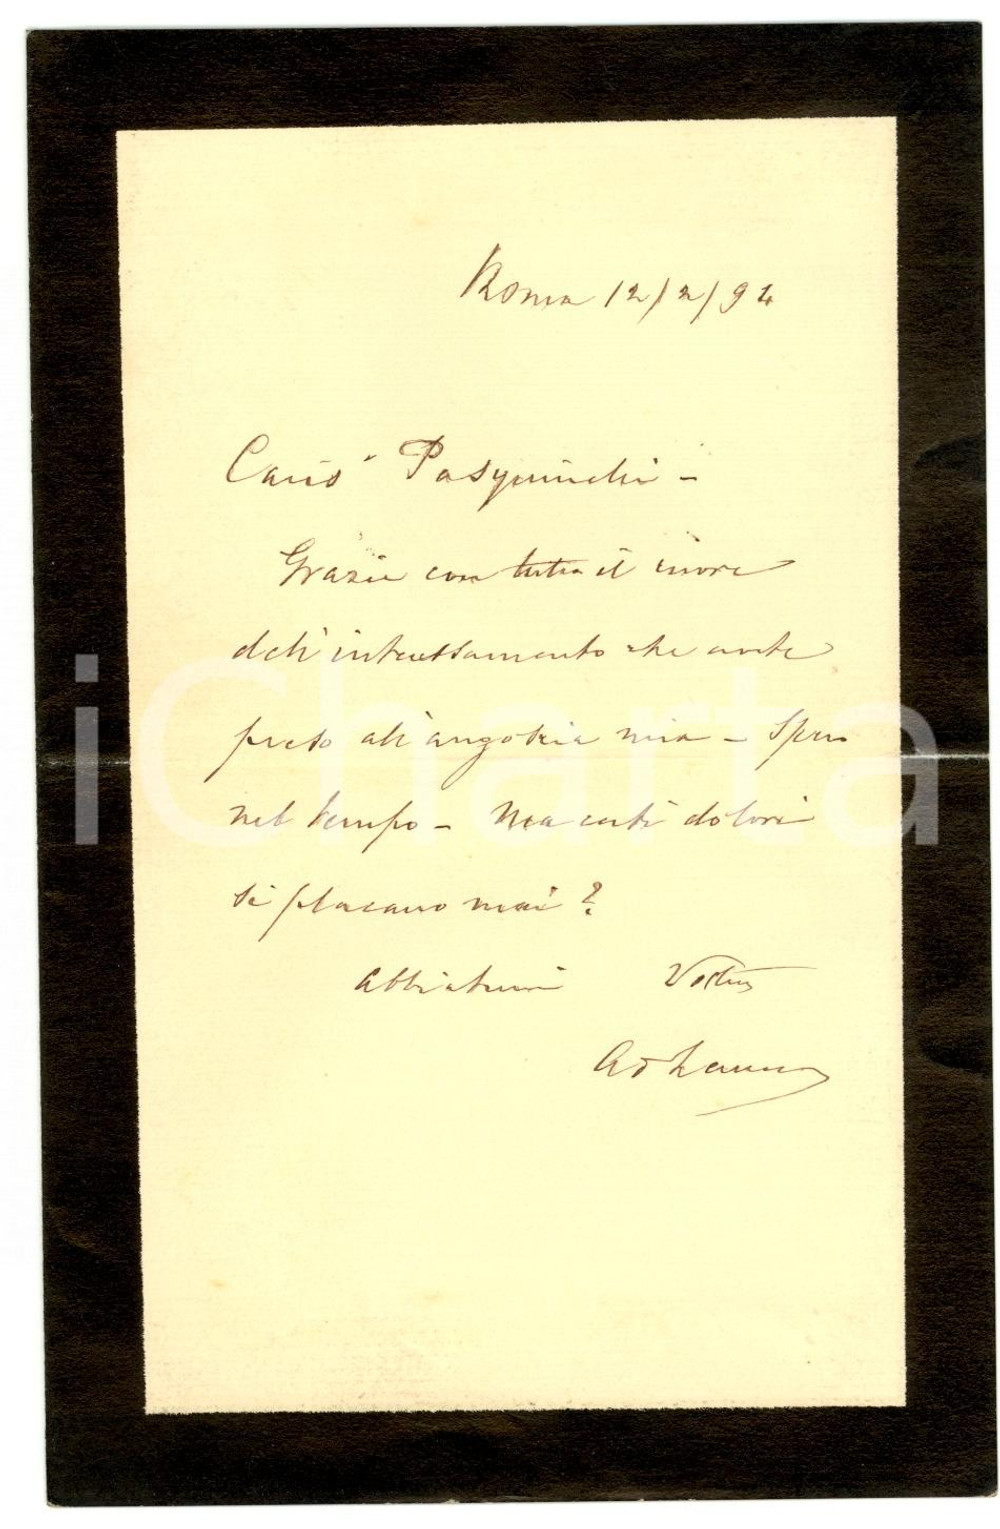 Roma 12/2/94
Cariso Pasquinelli -
Grazie con tutto il cuore
dell'interessamento che avete
preso all'angoscia mia - Spero
nel tempo - Ma certi dolori
si placano mai?
Abbiatemi Vostro
iCharta